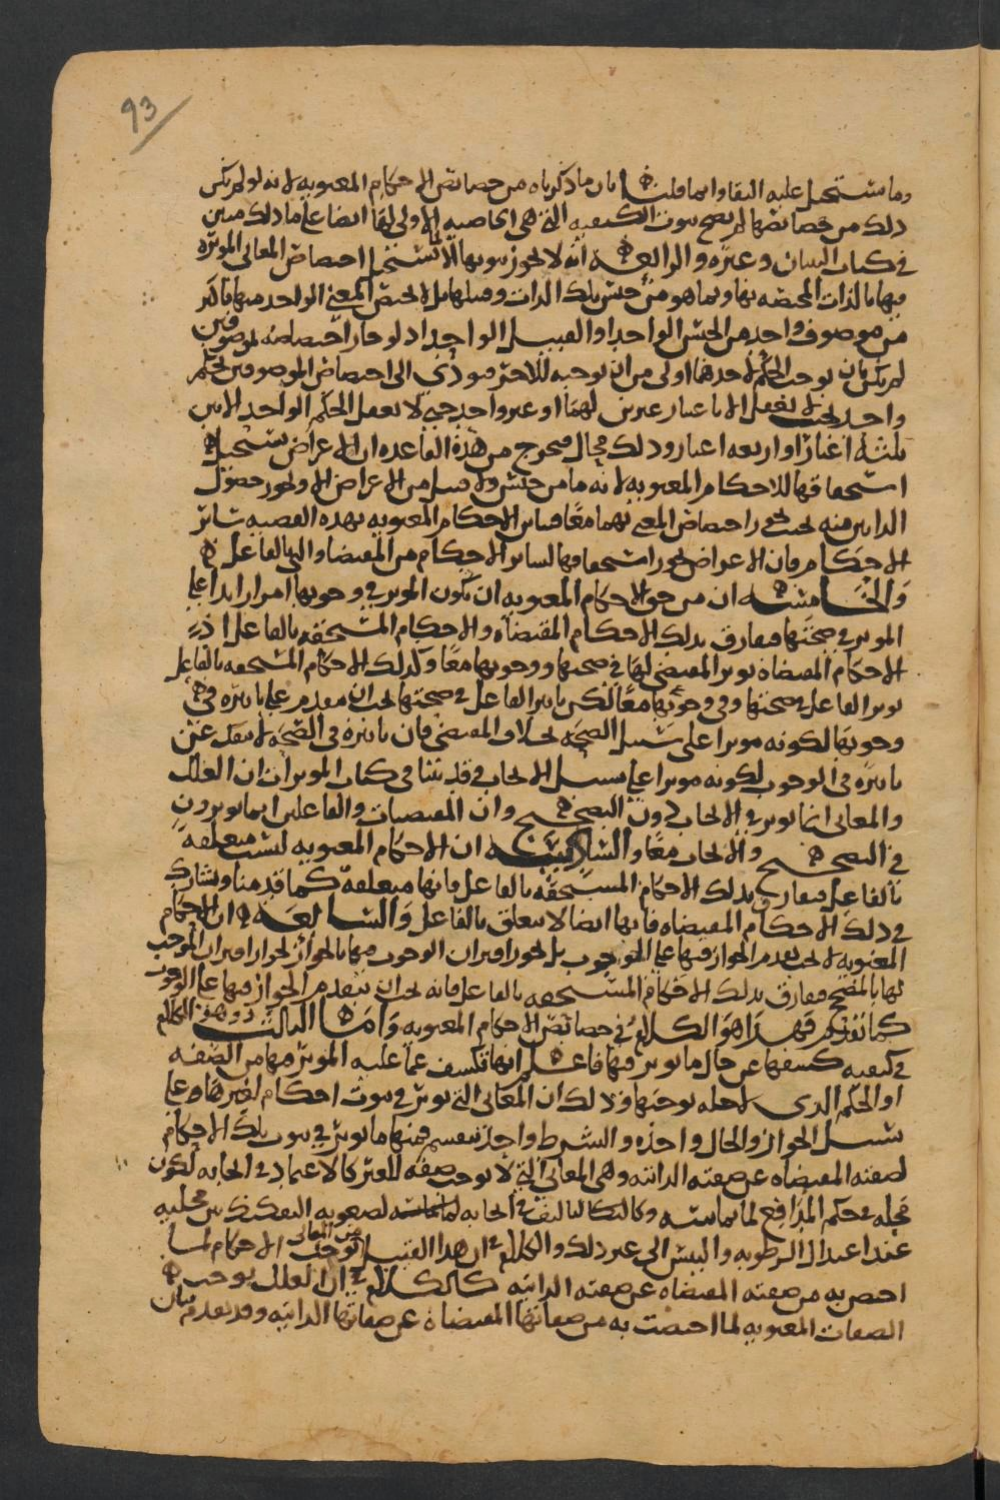 93
وما يستحيل عليه البقا وانما قلنا بان ما ذكرناه من خصائص الاحكام المعنويه لانه لو لم يكن
ذلك من خصائصها لم يصح ثبوت الكيفيه التي هي الخاصيه الاولى لها ايضا على ما ذلك مبين
في كتاب البيان وغيره والرابعة انه لا يجوز ثبوتها الا يستحيل اختصاص المعاني الموثره
فيها بالذات المختصه بها وبما هو من جنس تلك الذات وقبيلها بل لا يختص المعنى الواحد منها باكثر
من موصوف واحد من الجنس الواحد او القبيل الواحد اذ لو جاز اختصاصه لموصوفين
لم يكن بان يوجب الحكم لاحدهما اولى من ان يوجبه للاخر فيودي الى اختصاص الموصوفين بحكم
واحد بحيث لا يعقل الا باعتبار غيرين لهما او غير واحد حتى لا يعقل الحكم الواحد الا بين
ثلثة اغيار او اربعه اغيار وذلك محال فيخرج من هذه القاعده ان الاعراض يستحيل
استحقاقها للاحكام المعنويه لانه ما من جنس ولا قبيل من الاعراض الا ويجوز حصول
الذاتين منه بحيث يجب اختصاص المعنى بهما معا فباين الاحكام المعنويه بهذه القضيه سائر
الاحكام فان الاعراض يجوز استحقاقها لسائر الاحكام من المقتضا والتي بالفاعل
والخامسة ان من حق الاحكام المعنويه ان يكون الموثر في وجوبها امرا زايدا على
الموثر في صحتها فيفارق بذلك الاحكام المقتضاه والاحكام المستحقه بالفاعل اذ
الاحكام المقتضاه يوثر المقتضى لها في صحتها ووجوبها معا وكذلك الاحكام المستحقه بالفاعل
يوثر الفاعل في صحتها وفي وجوبها معا لكن تاثير الفاعل في صحتها يجب ان يتقدم على تاثيره في
وجوبها لكونه موثرا على سبيل الصحه بخلاف المقتضى فان تاثيره في الصحه لا ينفك عن
تاثيره في الوجوب لكونه موثرا على سبيل الايجاب وقد بينا في كتاب الموثرات ان العلل
والمعاني انما توثر في الايجاب دون التصحيح وان المقتضيات والفاعلين انما يوثرون
في التصحيح والايجاب معا والسادسة ان الاحكام المعنويه ليست متعلقه
بالفاعل فيفارق بذلك الاحكام المستحقه بالفاعل فانها متعلقه كما قدمنا ويشارك
في ذلك الاحكام المقتضاه فانها ايضا لا تتعلق بالفاعل والسابعة ان الاحكام
المعنويه لا يجب تقدم الجواز فيها على الوجوب بل يجوز اقتران الوجوب فيها بالجواز لجواز اقتران الموجب
لها بالمصحح فيفارق بذلك الاحكام المستحقه بالفاعل فانه يجب ان يتقدم الجواز فيها على الوجوب
كما تقدم فهذا هو الكلام في خصائص الاحكام المعنويه واما الثالث وهو الكلام
في كيفيه كشفها عن حال ما يوثر فيها فاعلم انها تكشف عما عليه الموثر فيها من الصفه
او الحكم الذي لاجله يوجبها وذلك ان المعاني التي توثر في ثبوت احكام لغيرها على
سبيل الجواز والحال واحده والشرط واحد تنقسم فمنها ما يوثر في ثبوت تلك الاحكام
لصفته المقتضاه عن صفته الذاتيه وهي المعاني التي لا توجب صفه للغير كالاعتماد في ايجابه لكون
محله في حكم المدافع لما يماسه وكالتاليف في ايجابه لصعوبه التفكيك بين محليه
عند اعتدال الرطوبه واليبس الى غير ذلك والكلام في ان هذا القبيل من المعاني يوجب الاحكام لما
اختص به من صفته المقتضاه عن صفته الذاتيه كالكلام في ان العلل يوجب
الصفات المعنويه لما اختصت به من صفاتها المقتضاه عن صفاتها الذاتيه وقد تقدم بيان